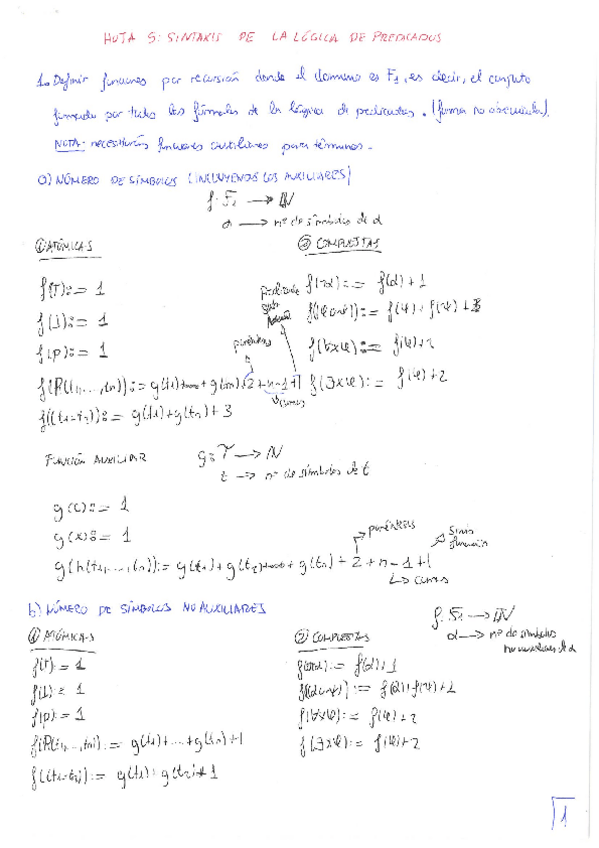 HOJA 5: SINTAXIS DE LA LÓGICA DE PREDICADOS
1. Definir funciones por recursión donde el dominio es F1, es decir, el conjunto
formado por todas las fórmulas de la lógica de predicados. (forma no abreviada).
NOTA: necesitarás funciones auxiliares para términos.
a) NÚMERO DE SÍMBOLOS (INCLUYENDO LOS AUXILIARES)
f: F1 → IN
α → nº de símbolos de α
① ATÓMICAS
② COMPUESTAS
f(T):= 1
f(⊥):= 1
f(p):= 1
f(R(t1,...,tn)):= g(t1)+...+g(tn)+2+n-1+1
f((t1=t2)):= g(t1)+g(t2)+3
paréntesis
comas
f(¬α):= f(α)+1
f(∀xφ):= f(φ)+2
f(∃xφ):= f(φ)+2
FUNCIÓN AUXILIAR
g: T → IN
t → nº de símbolos de t
g(c):= 1
g(x):= 1
g(h(t1,...,tn)):= g(t1)+g(t2)+...+g(tn)+2+n-1+1
paréntesis
símb. función
comas
b) NÚMERO DE SÍMBOLOS NO AUXILIARES
f: F1 → IN
α → nº de símbolos
no auxiliares de α
① ATÓMICAS
② COMPUESTAS
f(T):= 1
f(⊥):= 1
f(p):= 1
f(R(t1,...,tn)):= g(t1)+...+g(tn)+1
f((t1=t2)):= g(t1)+g(t2)+1
f(¬α):= f(α)+1
f(∀xφ):= f(φ)+2
f(∃xφ):= f(φ)+2
1